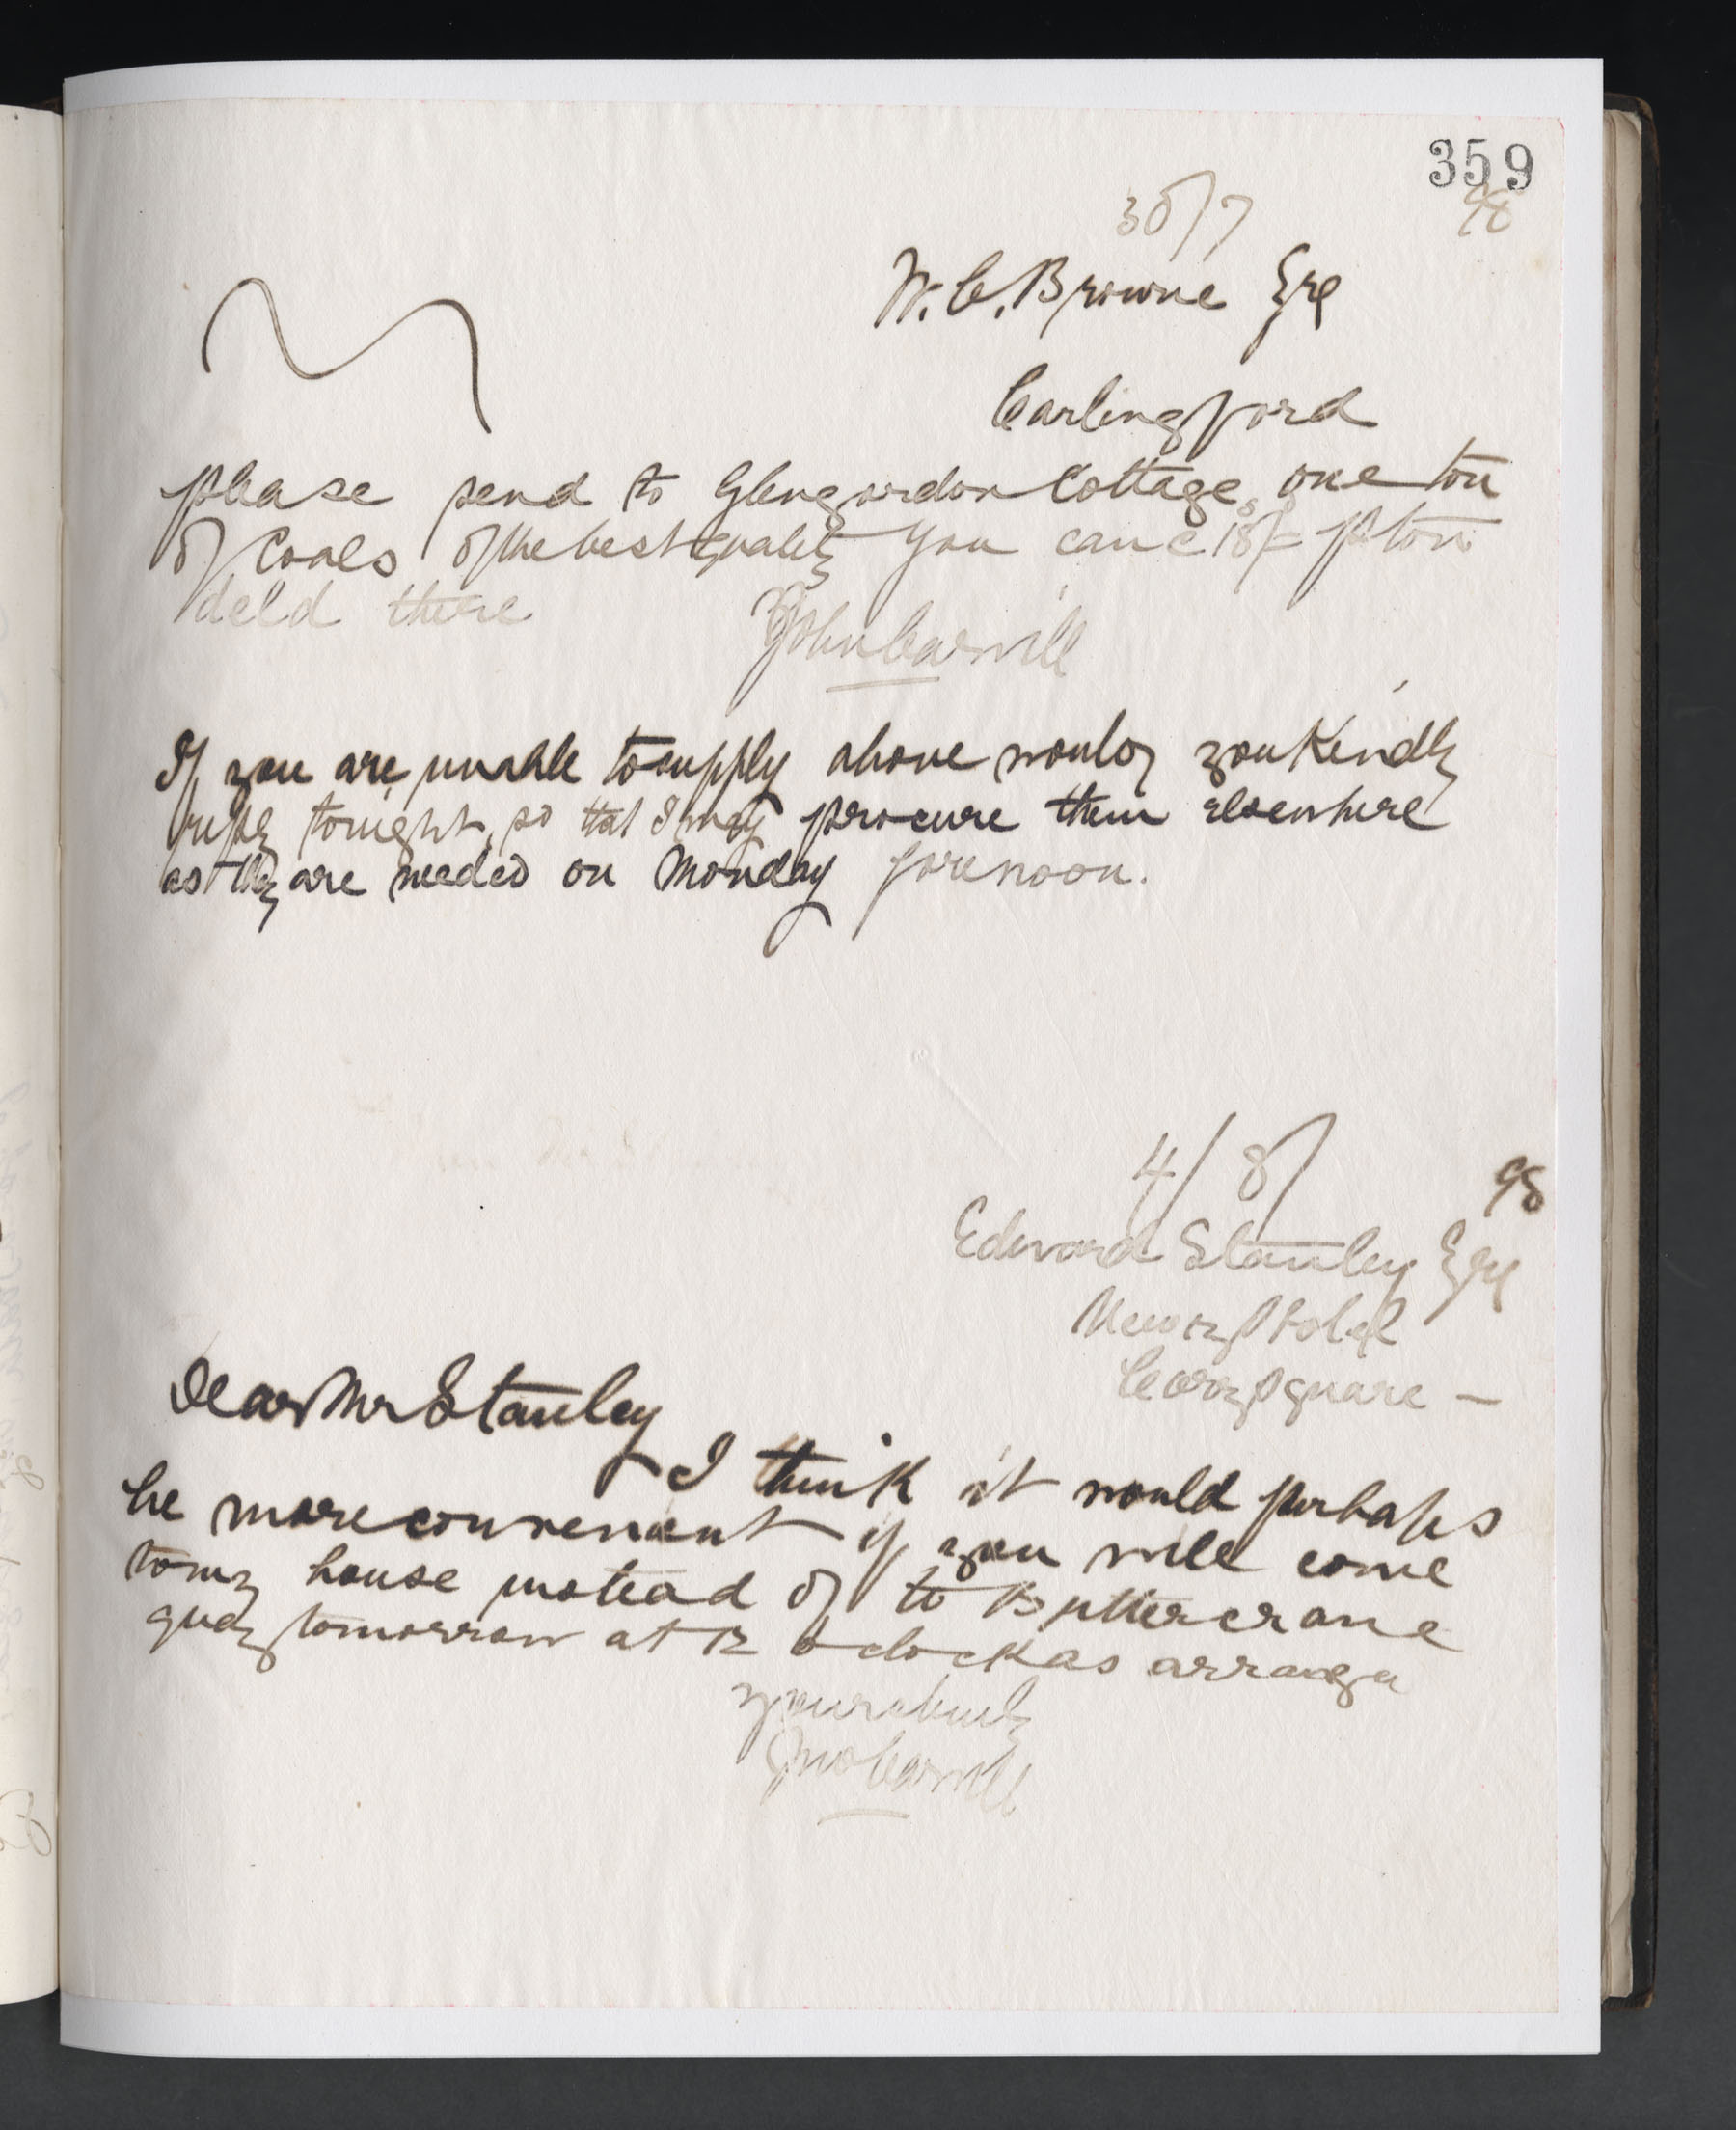 359
30/7 98
W. C. Browne Esq
Carlingford
please send to Glengordon Cottage, one ton
of Coals of the best quality you can @ 18/= p ton
deld there
John Carvill
If you are unable to supply above would you Kindly
reply tonight, so that I may procure them elsewhere
as they are needed on Monday forenoon.
4/8 98
Edward Stanley Esq
Newry Hotel
Corry Square —
Dear Mr Stanley
I think it would perhaps
be more convenient if you will come
to my house instead of to Buttercrane
quay tomorrow at 12 oclock as arranged
yours truly
Jno Carvill